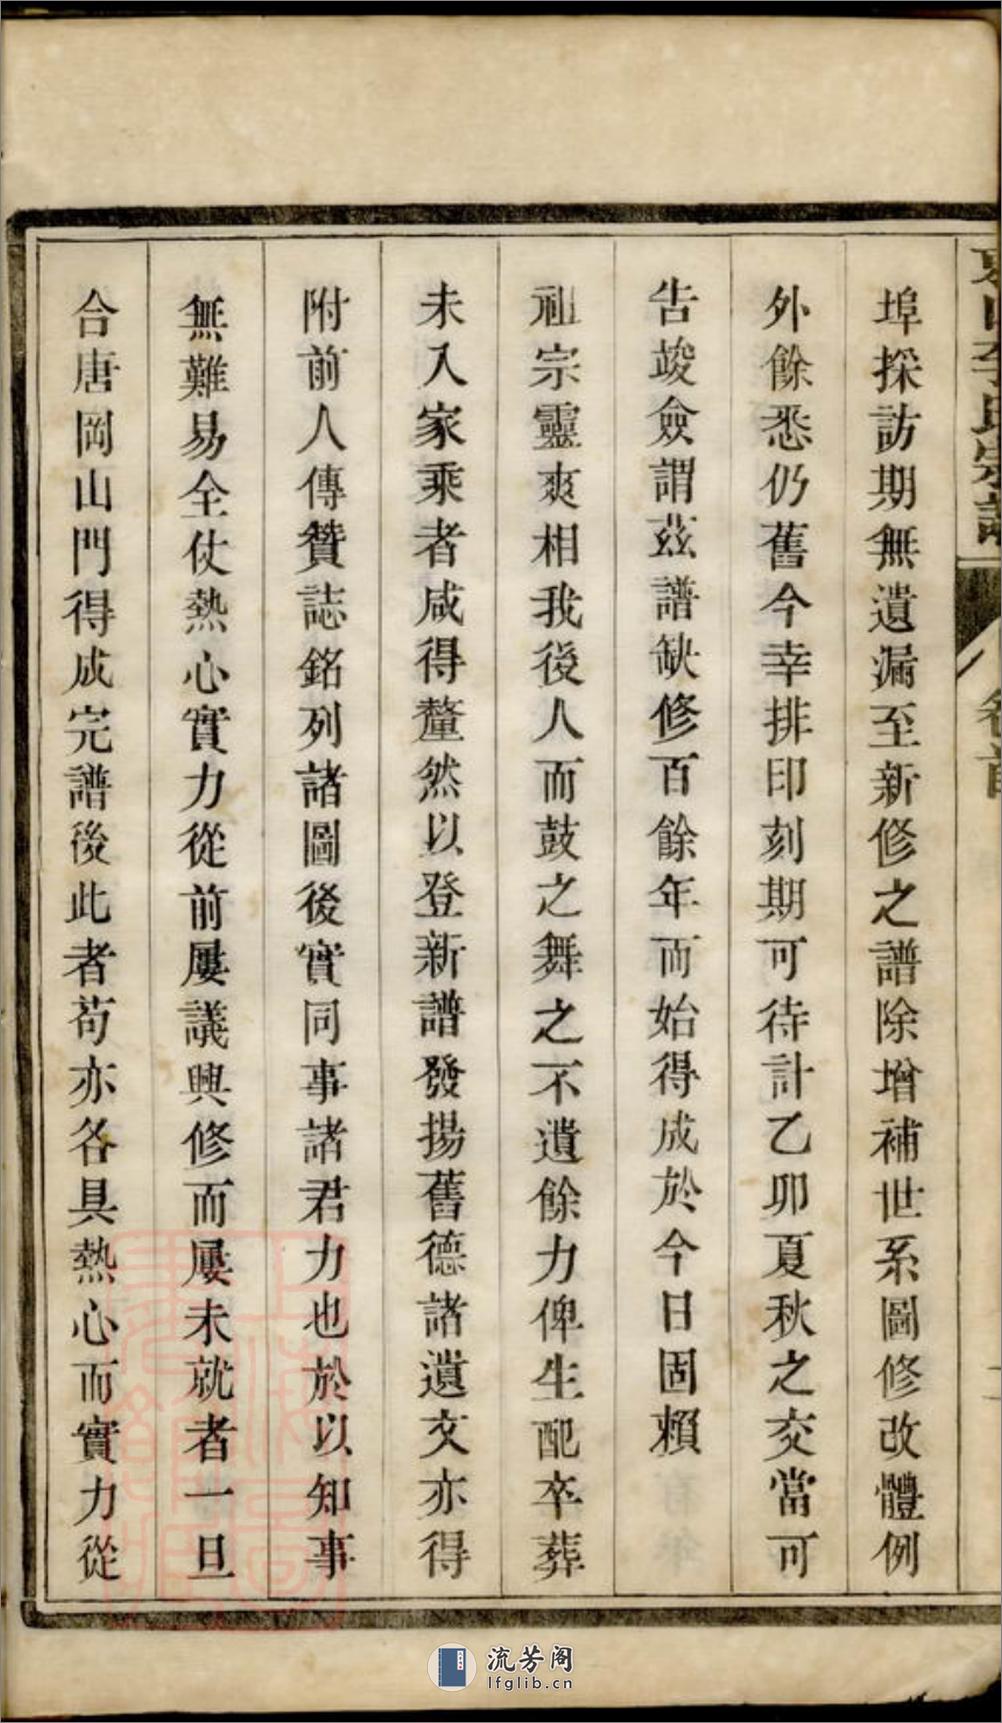 李氏宗譜
卷首
埠採訪期無遺漏至新修之譜除增補世系圖修改體例
外餘悉仍舊今幸排印刻期可待計乙卯夏秋之交當可
告竣僉謂茲譜缺修百餘年而始得成於今日固賴
祖宗靈爽相我後人而鼓之舞之不遺餘力俾生配卒葬
未入家乘者咸得釐然以登新譜發揚舊德諸遺文亦得
附前人傳贊誌銘列諸圖後實同事諸君力也於以知事
無難易全仗熱心實力從前屢議興修而屢未就者一旦
合唐岡山門得成完譜後此者苟亦各具熱心而實力從
流芳阁
lfglib.cn